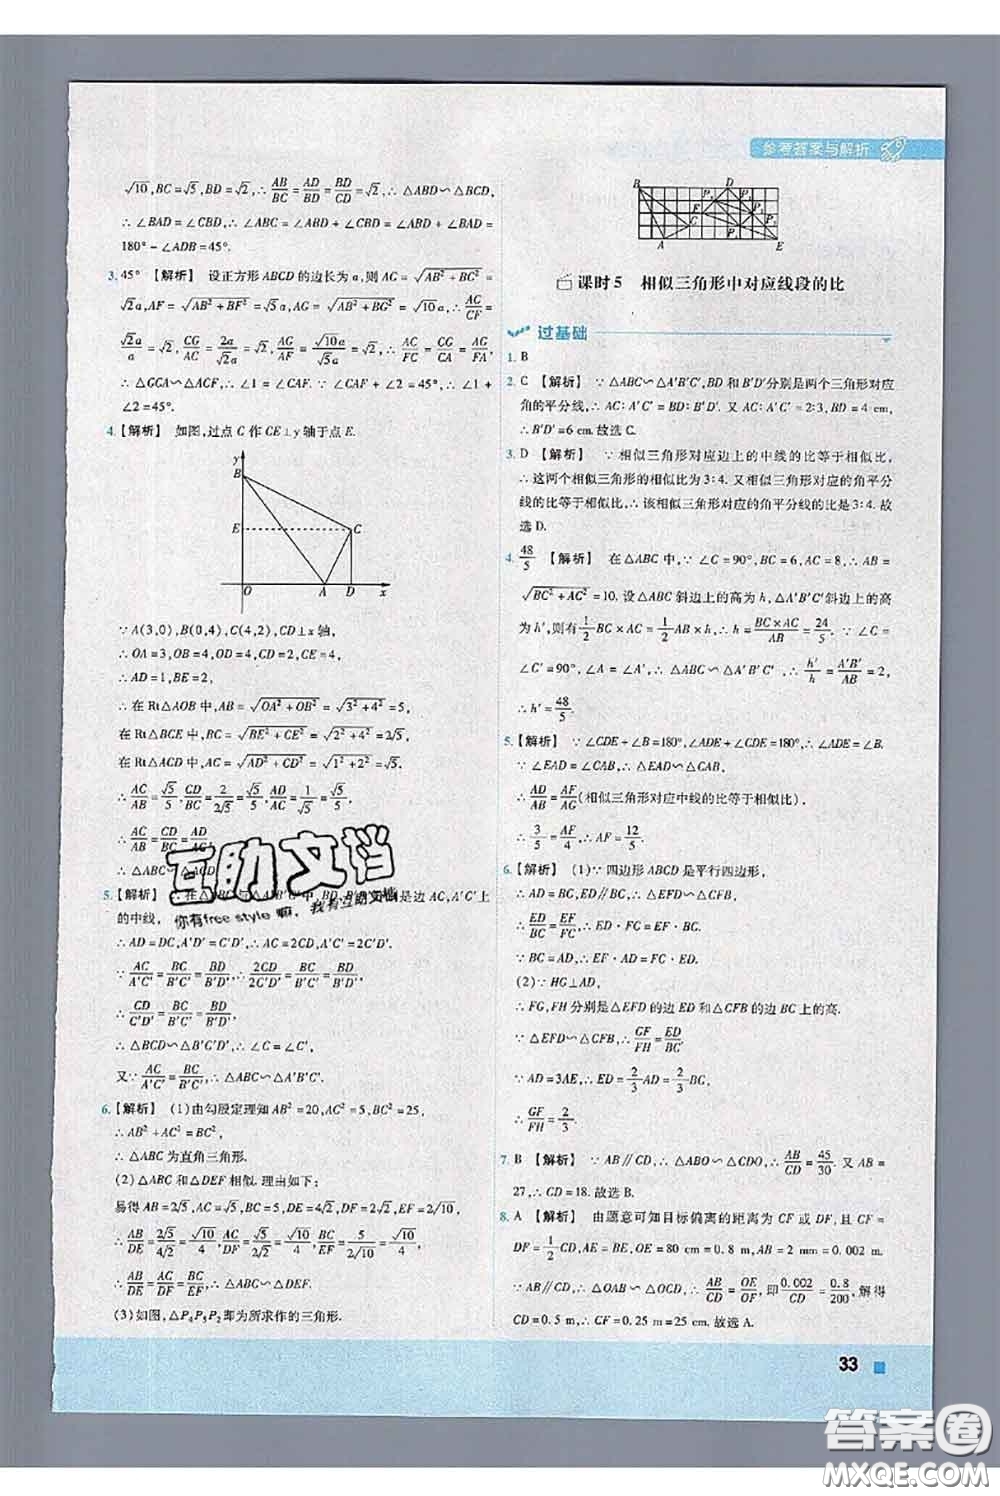 参考答案与解析
√10,BC=√5,BD=√2,∴AB/BC=AD/BD=BD/CD,∴△ABD∽△BCD,
∴∠BAD=∠CBD,∴∠ABC=∠ABD+∠CBD=∠ABD+∠BAD=
180°-∠ADB=45°.
3. 45° 【解析】 设正方形ABCD的边长为a,则AC=√(AB²+BC²)=
√2a,AF=√(AB²+BF²)=√5a,AG=√(AB²+BG²)=√10a,∴AC/CF=
√2a/a=√2,CG/AC=2a/√2a=√2,AG/AF=√10a/√5a=√2,∴AC/FC=CG/CA=AG/FA,
∴△GCA∽△ACF,∴∠1=∠CAF.∵∠CAF+∠2=45°,∴∠1+
∠2=45°.
4.【解析】 如图,过点C作CE⊥y轴于点E.
y
B
E
C
O
A
D
x
∵A(3,0),B(0,4),C(4,2),CD⊥x轴,
∴OA=3,OB=4,OD=4,CD=2,CE=4,
∴AD=1,BE=2,
∴在Rt△AOB中,AB=√(OA²+OB²)=√(3²+4²)=5,
在Rt△BCE中,BC=√(BE²+CE²)=√(2²+4²)=2√5,
在Rt△ACD中,AC=√(AD²+CD²)=√(1²+2²)=√5.
∴AC/AB=√5/5,CD/BC=2/2√5=√5/5,AD/AC=1/√5=√5/5,
∴AC/AB=CD/BC=AD/AC,
∴△ABC∽
互助文档
你有free style嘛,我有互助文档
5.【解析】 ∵在△ABC与△A'B'C'中,BD,B'D'分别是边AC,A'C'上
的中线,
∴AD=DC,A'D'=C'D',∴AC=2CD,A'C'=2C'D'.
∵AC/A'C'=BC/B'C'=BD/B'D',∴2CD/2C'D'=BC/B'C'=BD/B'D',
∴CD/C'D'=BC/B'C'=BD/B'D',
∴△BCD∽△B'C'D',∴∠C=∠C',
又∵AC/A'C'=BC/B'C',∴△ABC∽△A'B'C'.
6.【解析】 (1)由勾股定理知AB²=20,AC²=5,BC²=25,
∴AB²+AC²=BC²,
∴△ABC为直角三角形.
(2)△ABC和△DEF相似.理由如下:
易得AB=2√5,AC=√5,BC=5,DE=4√2,DF=2√2,EF=2√10,
∴AB/DE=2√5/4√2=√10/4,AC/DF=√5/2√2=√10/4,BC/EF=5/2√10=√10/4,
∴AB/DE=AC/DF=BC/EF,∴△ABC∽△DEF.
(3)如图,△P₄P₅P₂即为所求作的三角形.
B
D
F
C
A
E
课时5 相似三角形中对应线段的比
过基础
1. B
2. C 【解析】 ∵△ABC∽△A'B'C',BD和B'D'分别是两个三角形对应
角的平分线,∴AC:A'C'=BD:B'D'.又AC:A'C'=2:3,BD=4 cm,
∴B'D'=6 cm.故选C.
3. D 【解析】 ∵相似三角形对应边上的中线的比等于相似比,
∴这两个相似三角形的相似比为3:4.又相似三角形对应的角平分
线的比等于相似比,∴该相似三角形对应的角平分线的比是3:4.故
选D.
4. 48/5 【解析】 在△ABC中,∵∠C=90°,BC=6,AC=8,∴AB=
√(BC²+AC²)=10.设△ABC斜边上的高为h,△A'B'C'斜边上的高
为h',则有1/2BC×AC=1/2AB×h,∴h=BC×AC/AB=24/5.∵∠C=
∠C'=90°,∠A=∠A',∴△ABC∽△A'B'C',∴h'/h=A'B'/AB=2,
∴h'=48/5.
5.【解析】 ∵∠CDE+∠B=180°,∠ADE+∠CDE=180°,∴∠ADE=∠B.
∵∠EAD=∠CAB,∴△EAD∽△CAB,
∴AD/AB=AF/AG(相似三角形对应中线的比等于相似比),
∴3/5=AF/4,∴AF=12/5.
6.【解析】 (1)∵四边形ABCD是平行四边形,
∴AD=BC,AD∥BC,∴△EFD∽△CFB,
∴ED/BC=EF/FC,∴ED·FC=EF·BC.
∵BC=AD,∴EF·AD=ED·FC.
(2)∵HG⊥AD,
∴FG,FH分别是△EFD的边ED和△CFB的边BC上的高.
∵△EFD∽△CFB,∴GF/FH=ED/BC.
∵AD=3AE,∴ED=2/3AD=2/3BC,
∴GF/FH=2/3.
7. B 【解析】 ∵AB∥CD,∴△ABO∽△CDO,∴AB/CD=45/30.又AB=
27,∴CD=18.故选B.
8. A 【解析】 由题意可知目标偏离的距离为CF或DF,且CF=
DF=1/2CD,AE=BE,OE=80 cm=0.8 m,AB=2 mm=0.002 m.
∵AB∥CD,∴△OAB∽△OCD,∴AB/CD=OE/OF,即0.002/CD=0.8/200,解得
CD=0.5 m,∴CF=0.25 m=25 cm.故选A.
33
答案圈
MXQE.COM